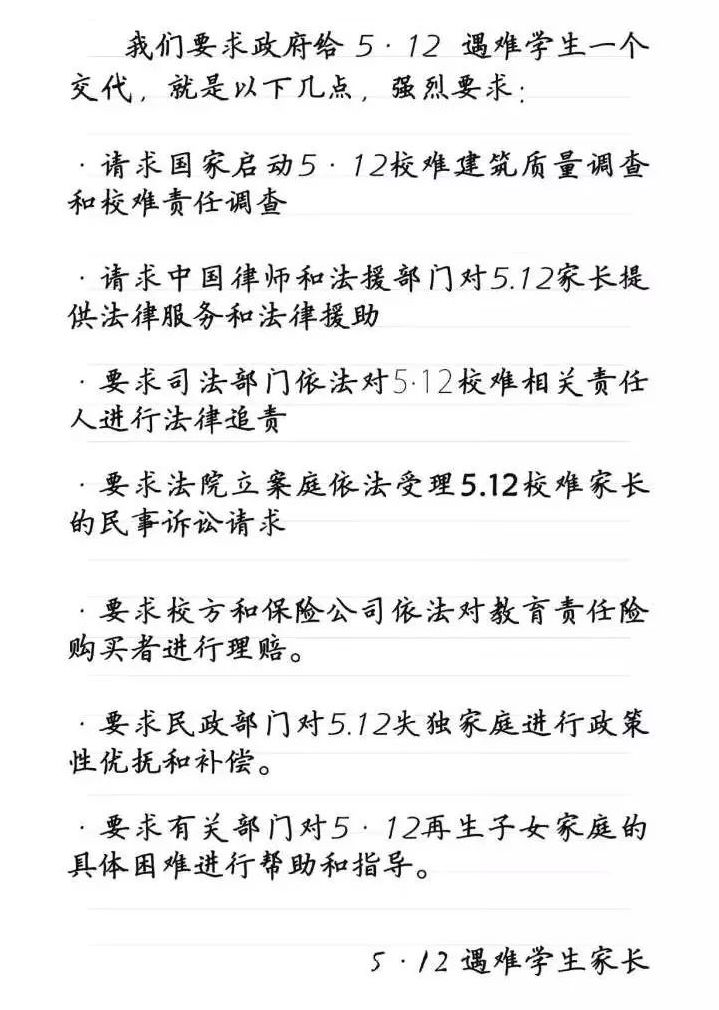 我们要求政府给 5·12 遇难学生一个
交代，就是以下几点，强烈要求：
·请求国家启动5·12校难建筑质量调查
和校难责任调查
·请求中国律师和法援部门对5.12家长提
供法律服务和法律援助
·要求司法部门依法对5·12校难相关责任
人进行法律追责
·要求法院立案庭依法受理5.12校难家长
的民事诉讼请求
·要求校方和保险公司依法对教育责任险
购买者进行理赔。
·要求民政部门对5.12失独家庭进行政策
性优抚和补偿。
·要求有关部门对5·12再生子女家庭的
具体困难进行帮助和指导。
5·12 遇难学生家长